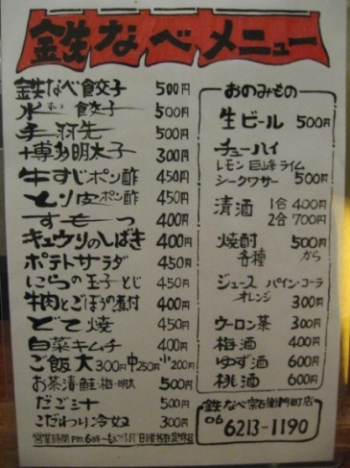 鉄なべメニュー
鉄なべ餃子 500円
水餃子 500円
手羽先 500円
博多明太子 300円
牛すじポン酢 450円
とり皮ポン酢 450円
すもつ 400円
キュウリのしばき 400円
ポテトサラダ 450円
にらの玉子とじ 450円
牛肉とごぼうの煮付 400円
どて焼 450円
白菜キムチ 400円
ご飯 大300円 中250円 小200円
お茶漬・鮭・梅・明太 500円
だご汁 500円
こだわり冷奴 300円
営業時間 PM6時〜
おのみもの
生ビール 500円
チューハイ
レモン 巨峰 ライム
シークワサー 500円
清酒 1合 400円
2合 700円
焼酎 500円
各種 から
ジュース パイン・コーラ
オレンジ 300円
ウーロン茶 300円
梅酒 400円
ゆず酒 600円
桃酒 600円
鉄なべ宗右衛門町店
06
6213-1190